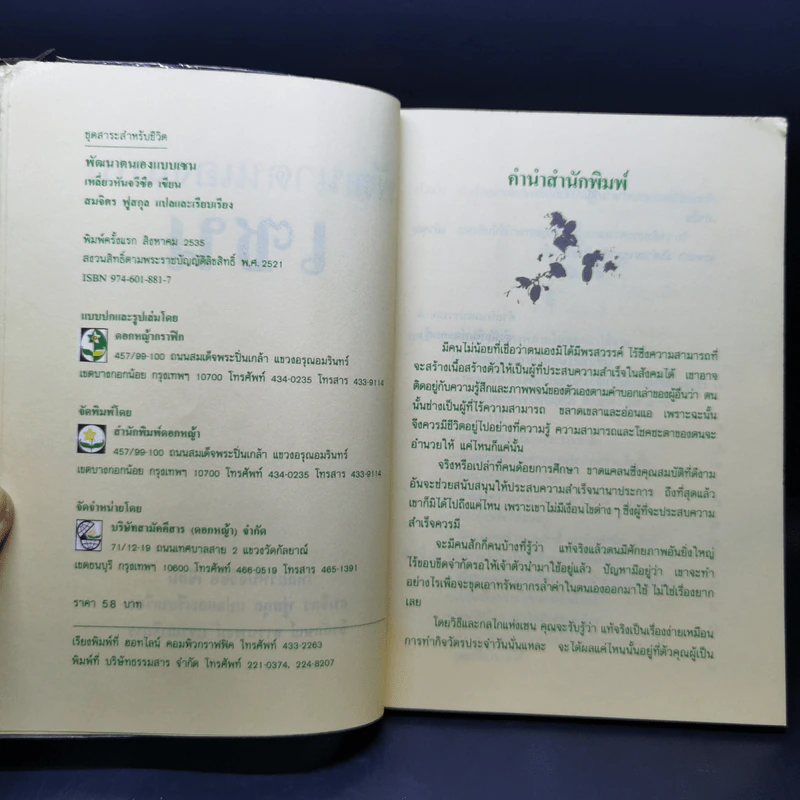 ชุดสาระสำหรับชีวิต
พัฒนาตนเองแบบเซน
เหลี่ยวหันจวีซือ เขียน
สมจิตร ฟูสกุล แปลและเรียบเรียง
พิมพ์ครั้งแรก สิงหาคม 2535
สงวนสิทธิ์ตามพระราชบัญญัติลิขสิทธิ์ พ.ศ. 2521
ISBN 974-601-881-7
แบบปกและรูปเล่มโดย
ดอกหญ้ากราฟิก
457/99-100 ถนนสมเด็จพระปิ่นเกล้า แขวงอรุณอมรินทร์
เขตบางกอกน้อย กรุงเทพฯ 10700 โทรศัพท์ 434-0235 โทรสาร 433-9114
จัดพิมพ์โดย
สำนักพิมพ์ดอกหญ้า
457/99-100 ถนนสมเด็จพระปิ่นเกล้า แขวงอรุณอมรินทร์
เขตบางกอกน้อย กรุงเทพฯ 10700 โทรศัพท์ 434-0235 โทรสาร 433-9114
จัดจำหน่ายโดย
บริษัทสามัคคีสาร (ดอกหญ้า) จำกัด
71/12-19 ถนนเทศบาลสาย 2 แขวงวัดกัลยาณ์
เขตธนบุรี กรุงเทพฯ 10600 โทรศัพท์ 466-0519 โทรสาร 465-1391
ราคา 58 บาท
เรียงพิมพ์ที่ ฮอทไลน์ คอมพิวกราฟฟิค โทรศัพท์ 433-2263
พิมพ์ที่ บริษัทธรรมสาร จำกัด โทรศัพท์ 221-0374, 224-8207
คำนำสำนักพิมพ์
มีคนไม่น้อยที่เชื่อว่าตนเองมิได้มีพรสวรรค์ ไร้ซึ่งความสามารถที่
จะสร้างเนื้อสร้างตัวให้เป็นผู้ที่ประสบความสำเร็จในสังคมได้ เขาอาจ
ติดอยู่กับความรู้สึกและภาพพจน์ของตัวเองตามคำบอกเล่าของผู้อื่นว่า ตน
นั้นช่างเป็นผู้ที่ไร้ความสามารถ ขลาดเขลาและอ่อนแอ เพราะฉะนั้น
จึงควรมีชีวิตอยู่ไปอย่างที่ความรู้ ความสามารถและโชคชะตาของตนจะ
อำนวยให้ แค่ไหนก็แค่นั้น
จริงหรือเปล่าที่คนด้อยการศึกษา ขาดแคลนซึ่งคุณสมบัติที่ดีงาม
อันจะช่วยสนับสนุนให้ประสบความสำเร็จนานาประการ ถึงที่สุดแล้ว
เขาก็มิได้ไปถึงแค่ไหน เพราะเขาไม่มีเงื่อนไขต่าง ๆ ซึ่งผู้ที่จะประสบความ
สำเร็จควรมี
จะมีคนสักกี่คนบ้างที่รู้ว่า แท้จริงแล้วตนมีศักยภาพอันยิ่งใหญ่
ไร้ขอบขีดจำกัดรอให้เจ้าตัวนำมาใช้อยู่แล้ว ปัญหามีอยู่ว่า เขาจะทำ
อย่างไรเพื่อจะขุดเอาทรัพยากรล้ำค่าในตนเองออกมาใช้ ไม่ใช่เรื่องยาก
เลย
โดยวิธีและกลไกแห่งเซน คุณจะรับรู้ว่า แท้จริงเป็นเรื่องง่ายเหมือน
การทำกิจวัตรประจำวันนั่นแหละ จะได้ผลแค่ไหนนั้นอยู่ที่ตัวคุณผู้เป็น